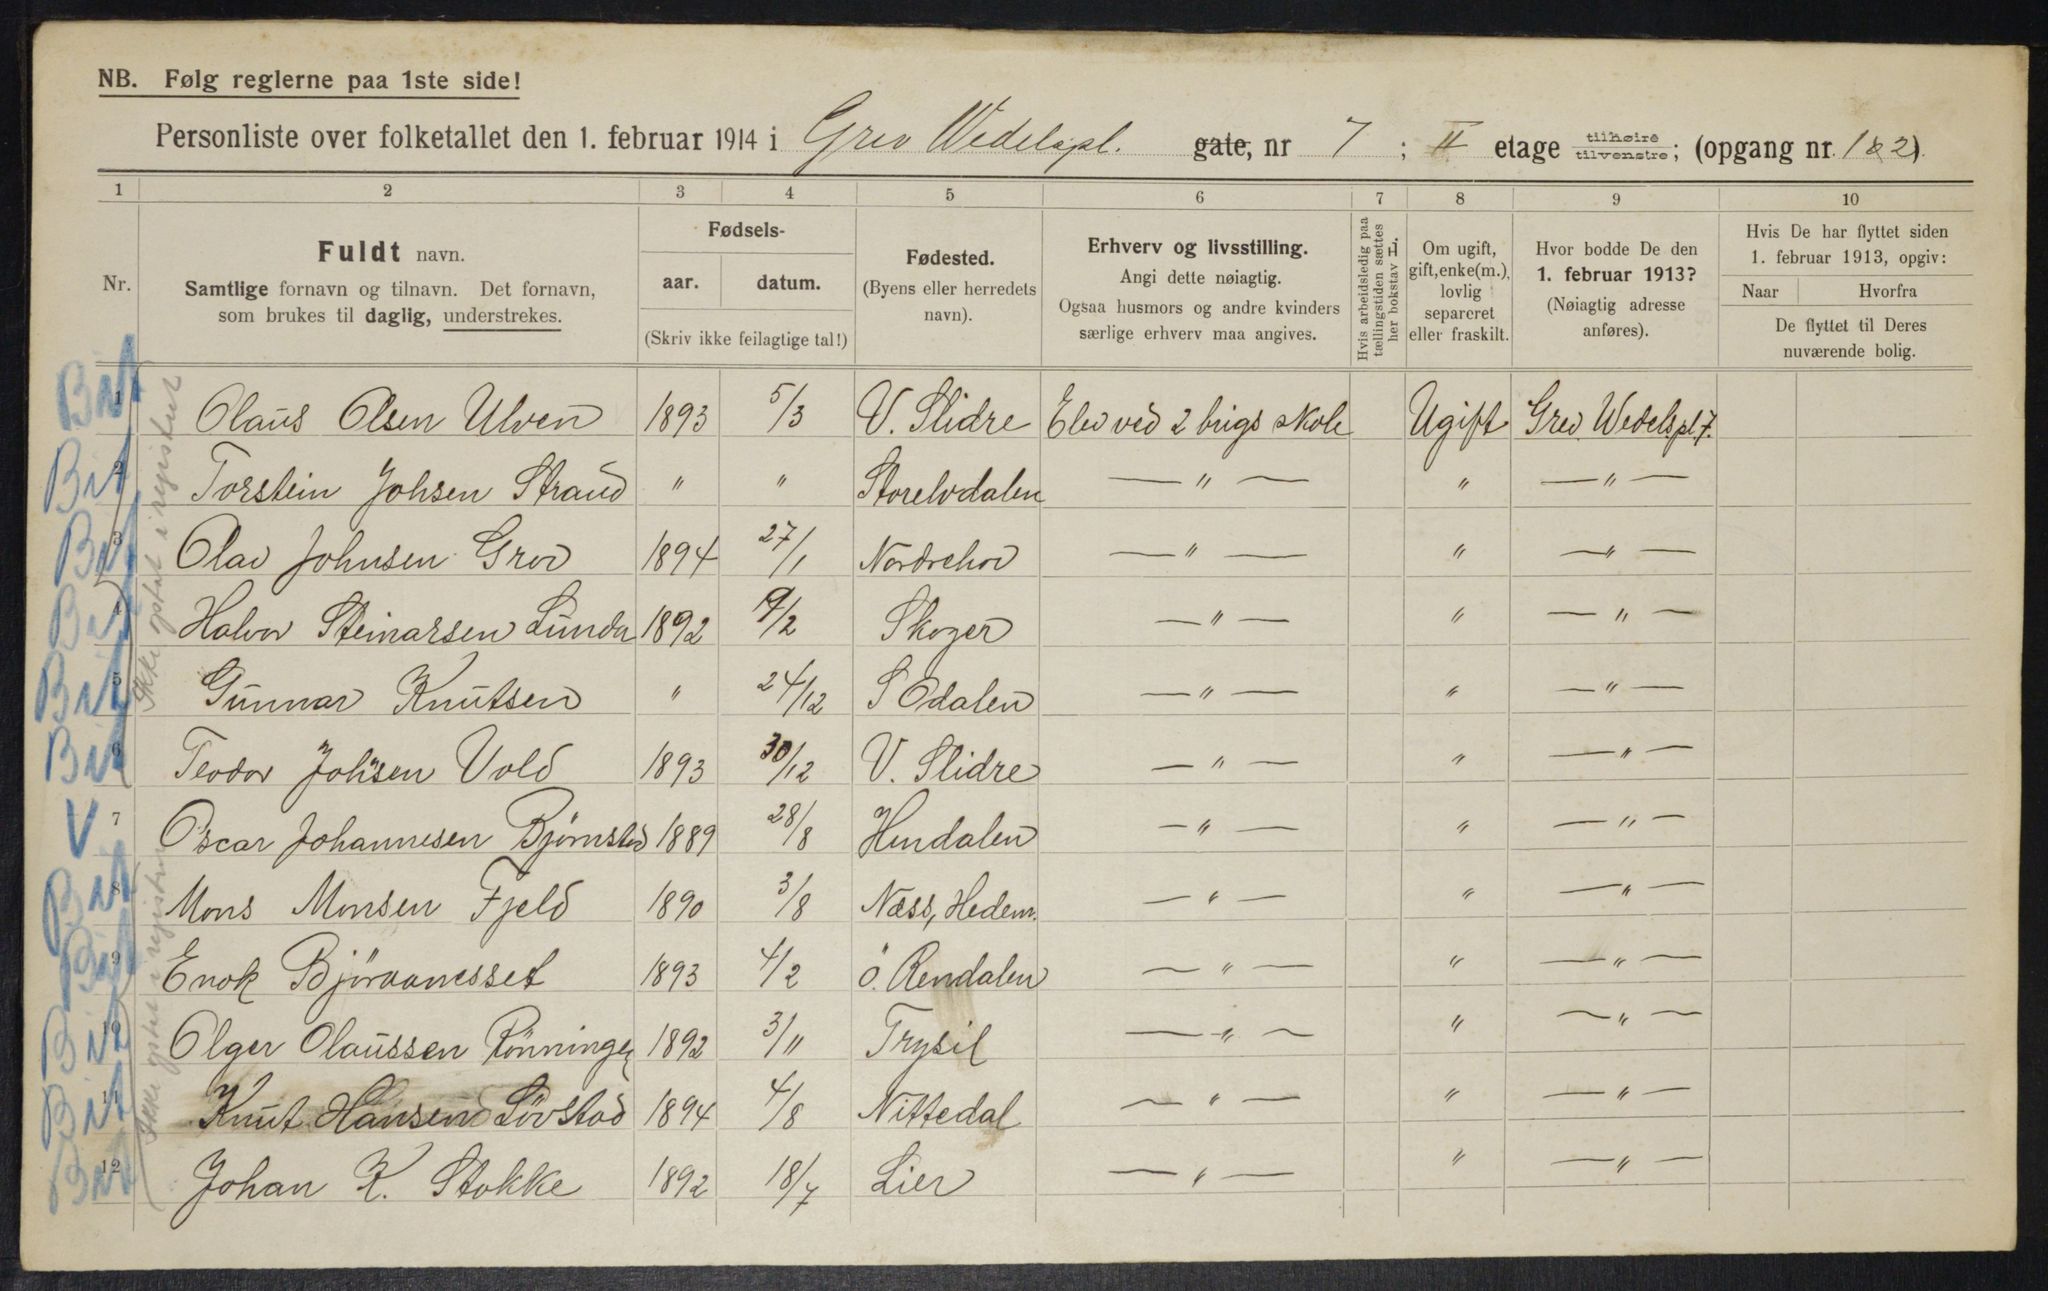 NB. Følg reglerne paa 1ste side!
Personliste over folketallet den 1. februar 1914 i Grev Wedelspl. gate, nr 7; II etage tilhøire tilvenstre; (opgang nr. 1 & 2).
1 2 3 4 5 6 7 8 9 10
Nr.
Fuldt navn.
Samtlige fornavn og tilnavn. Det fornavn,
som brukes til daglig, understrekes.
Fødsels-
aar. datum.
(Skriv ikke feilagtige tal!)
Fødested.
(Byens eller herredets
navn).
Erhverv og livsstilling.
Angi dette nøiagtig.
Ogsaa husmors og andre kvinders
særlige erhverv maa angives.
Hvis arbeidsledig paa
tællingstiden sættes
her bokstav L.
Om ugift,
gift, enke(m.),
lovlig
separeret
eller fraskilt.
Hvor bodde De den
1. februar 1913?
(Nøiagtig adresse
anføres).
Hvis De har flyttet siden
1. februar 1913, opgiv:
Naar Hvorfra
De flyttet til Deres
nuværende bolig.
Ikke optat i registret
1 Olaus Olsen Ulven 1893 5/3 V. Slidre Elev ved 2 brigs skole Ugift Grev Wedelspl. 7.
2 Torstein Johsen Strand " " Storelvdalen — " — " — " —
3 Olav Johnsen Grov 1894 27/1 Nordrehov — " — " — " —
4 Halvor Steinarsen Lunda 1892 9/2 Skoger — " — " — " —
5 Gunnar Knutsen " 24/12 S Odalen — " — " — " —
6 Teodor Johsen Vold 1893 30/12 V. Slidre — " — " — " —
V 7 Oscar Johannesen Bjørnstad 1889 28/8 Hendalen — " — " — " —
Ikke optat i registret
8 Mons Monsen Fjeld 1890 3/8 Næss, Hedem. — " — " — " —
9 Enok Björaanesset 1893 4/2 ö. Rendalen — " — " — " —
10 Olger Olaussen Rönningen 1892 3/11 Trysil — " — " — " —
11 Knut Hansen Lövstad 1894 4/8 Nittedal — " — " — " —
12 Johan K. Stokke 1892 18/7 Lier — " — " — " —